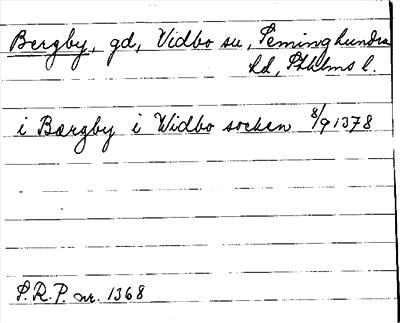 Bergby, gd, Vidbo sn, Seminghundra
hd, Sthlms l.
i Bærgby i Widbo socken 8/9 1378
S.R.P. nr. 1368